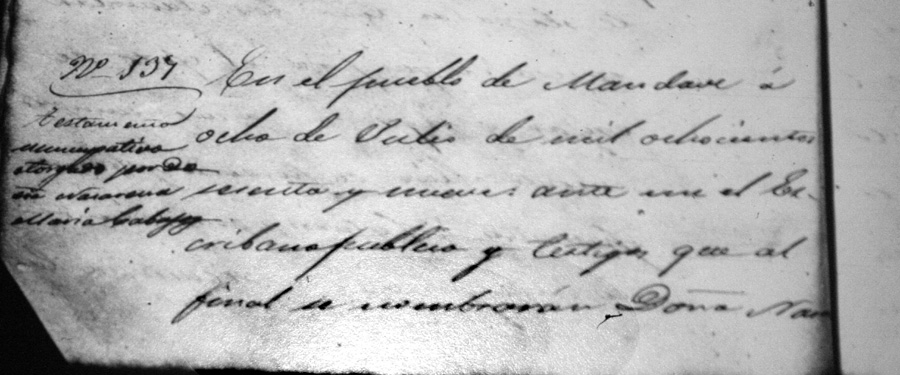 Nº 137
testamento
nuncupativo
otorgado por Do
ña Nazarena
Maria
En el pueblo de á
ocho de Julio de mil ochocientos
sesenta y nueve: ante mi el Es-
cribano publico y testigos que al
final se nombrarán, Doña Naz